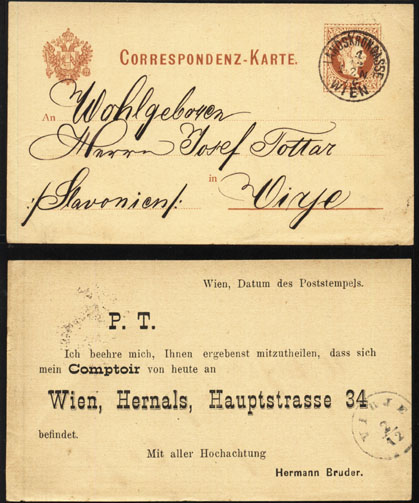 CORRESPONDENZ-KARTE.
WIEN
An Wohlgeboren
Herrn Josef Tottar
in
/:Slavonien:/ Virje
Wien, Datum des Poststempels.
P. T.
Ich beehre mich, Ihnen ergebenst mitzutheilen, dass sich
mein Comptoir von heute an
Wien, Hernals, Hauptstrasse 34
befindet.
Mit aller Hochachtung
Hermann Bruder.
VIRJE